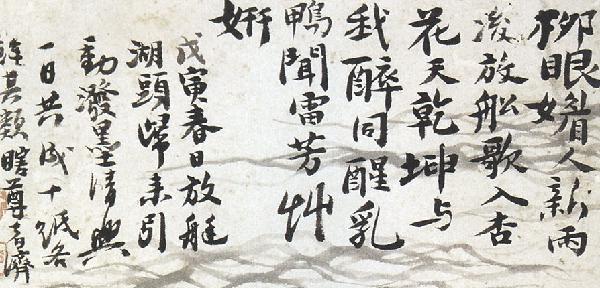 柳眼媚人新雨
後放船歌入杏
花天乾坤与
我醉同醒乳
鴨聞雷芳艸
妍
戊寅春日放艇
湖頭歸来引
動潑墨清興
一日共成十紙各
錄其類瞎尊者濟